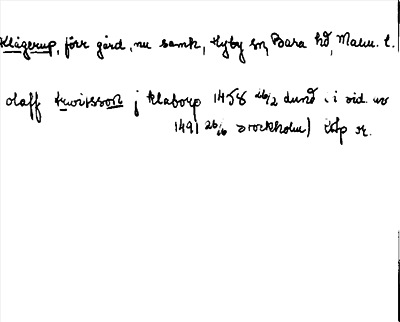 Klågerup, förr gård, nu samh, Hyby sn, Bara hd, Malm. l.
olaff truidsson j klaborp 1458 26/2 Lund. i vid. av
1491 26/10 Stockholm) isp or.